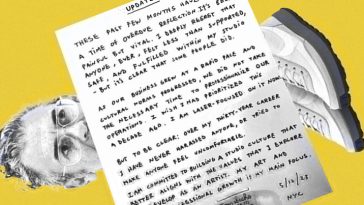 UPDATE
THESE PAST FEW MONTHS HAVE
A TIME OF OVERDUE REFLECTION. IT'S
PAINFUL BUT VITAL. I DEEPLY REGRET THAT
ANYONE, EVER, FELT LESS THAN SUPPORTED,
SAFE, AND FULFILLED WITHIN MY STUDIO
- BUT IT'S CLEAR THAT SOME PEOPLE DID.
AS OUR BUSINESS GREW AT A RAPID PACE AND
CULTURAL NORMS PROGRESSED, WE DID NOT TAKE
THE NECESSARY TIME TO PROFESSIONALIZE OUR
OPERATIONS. I WISH I HAD PRIORITIZED THIS
A DECADE AGO. I AM LASER-FOCUSED ON IT NOW.
BUT TO BE CLEAR: OVER MY THIRTY-YEAR CAREER
I HAVE NEVER HARASSED ANYONE, OR TRIED TO
MAKE ANYONE FEEL UNCOMFORTABLE.
I AM COMMITTED TO BUILDING A STUDIO CULTURE THAT
BETTER ALIGNS WITH THE VALUES THAT I EXPLORE
AS AN ARTIST. MY ART AND
GROWTH IS MY MAIN FOCUS.
5/12/23
NYC